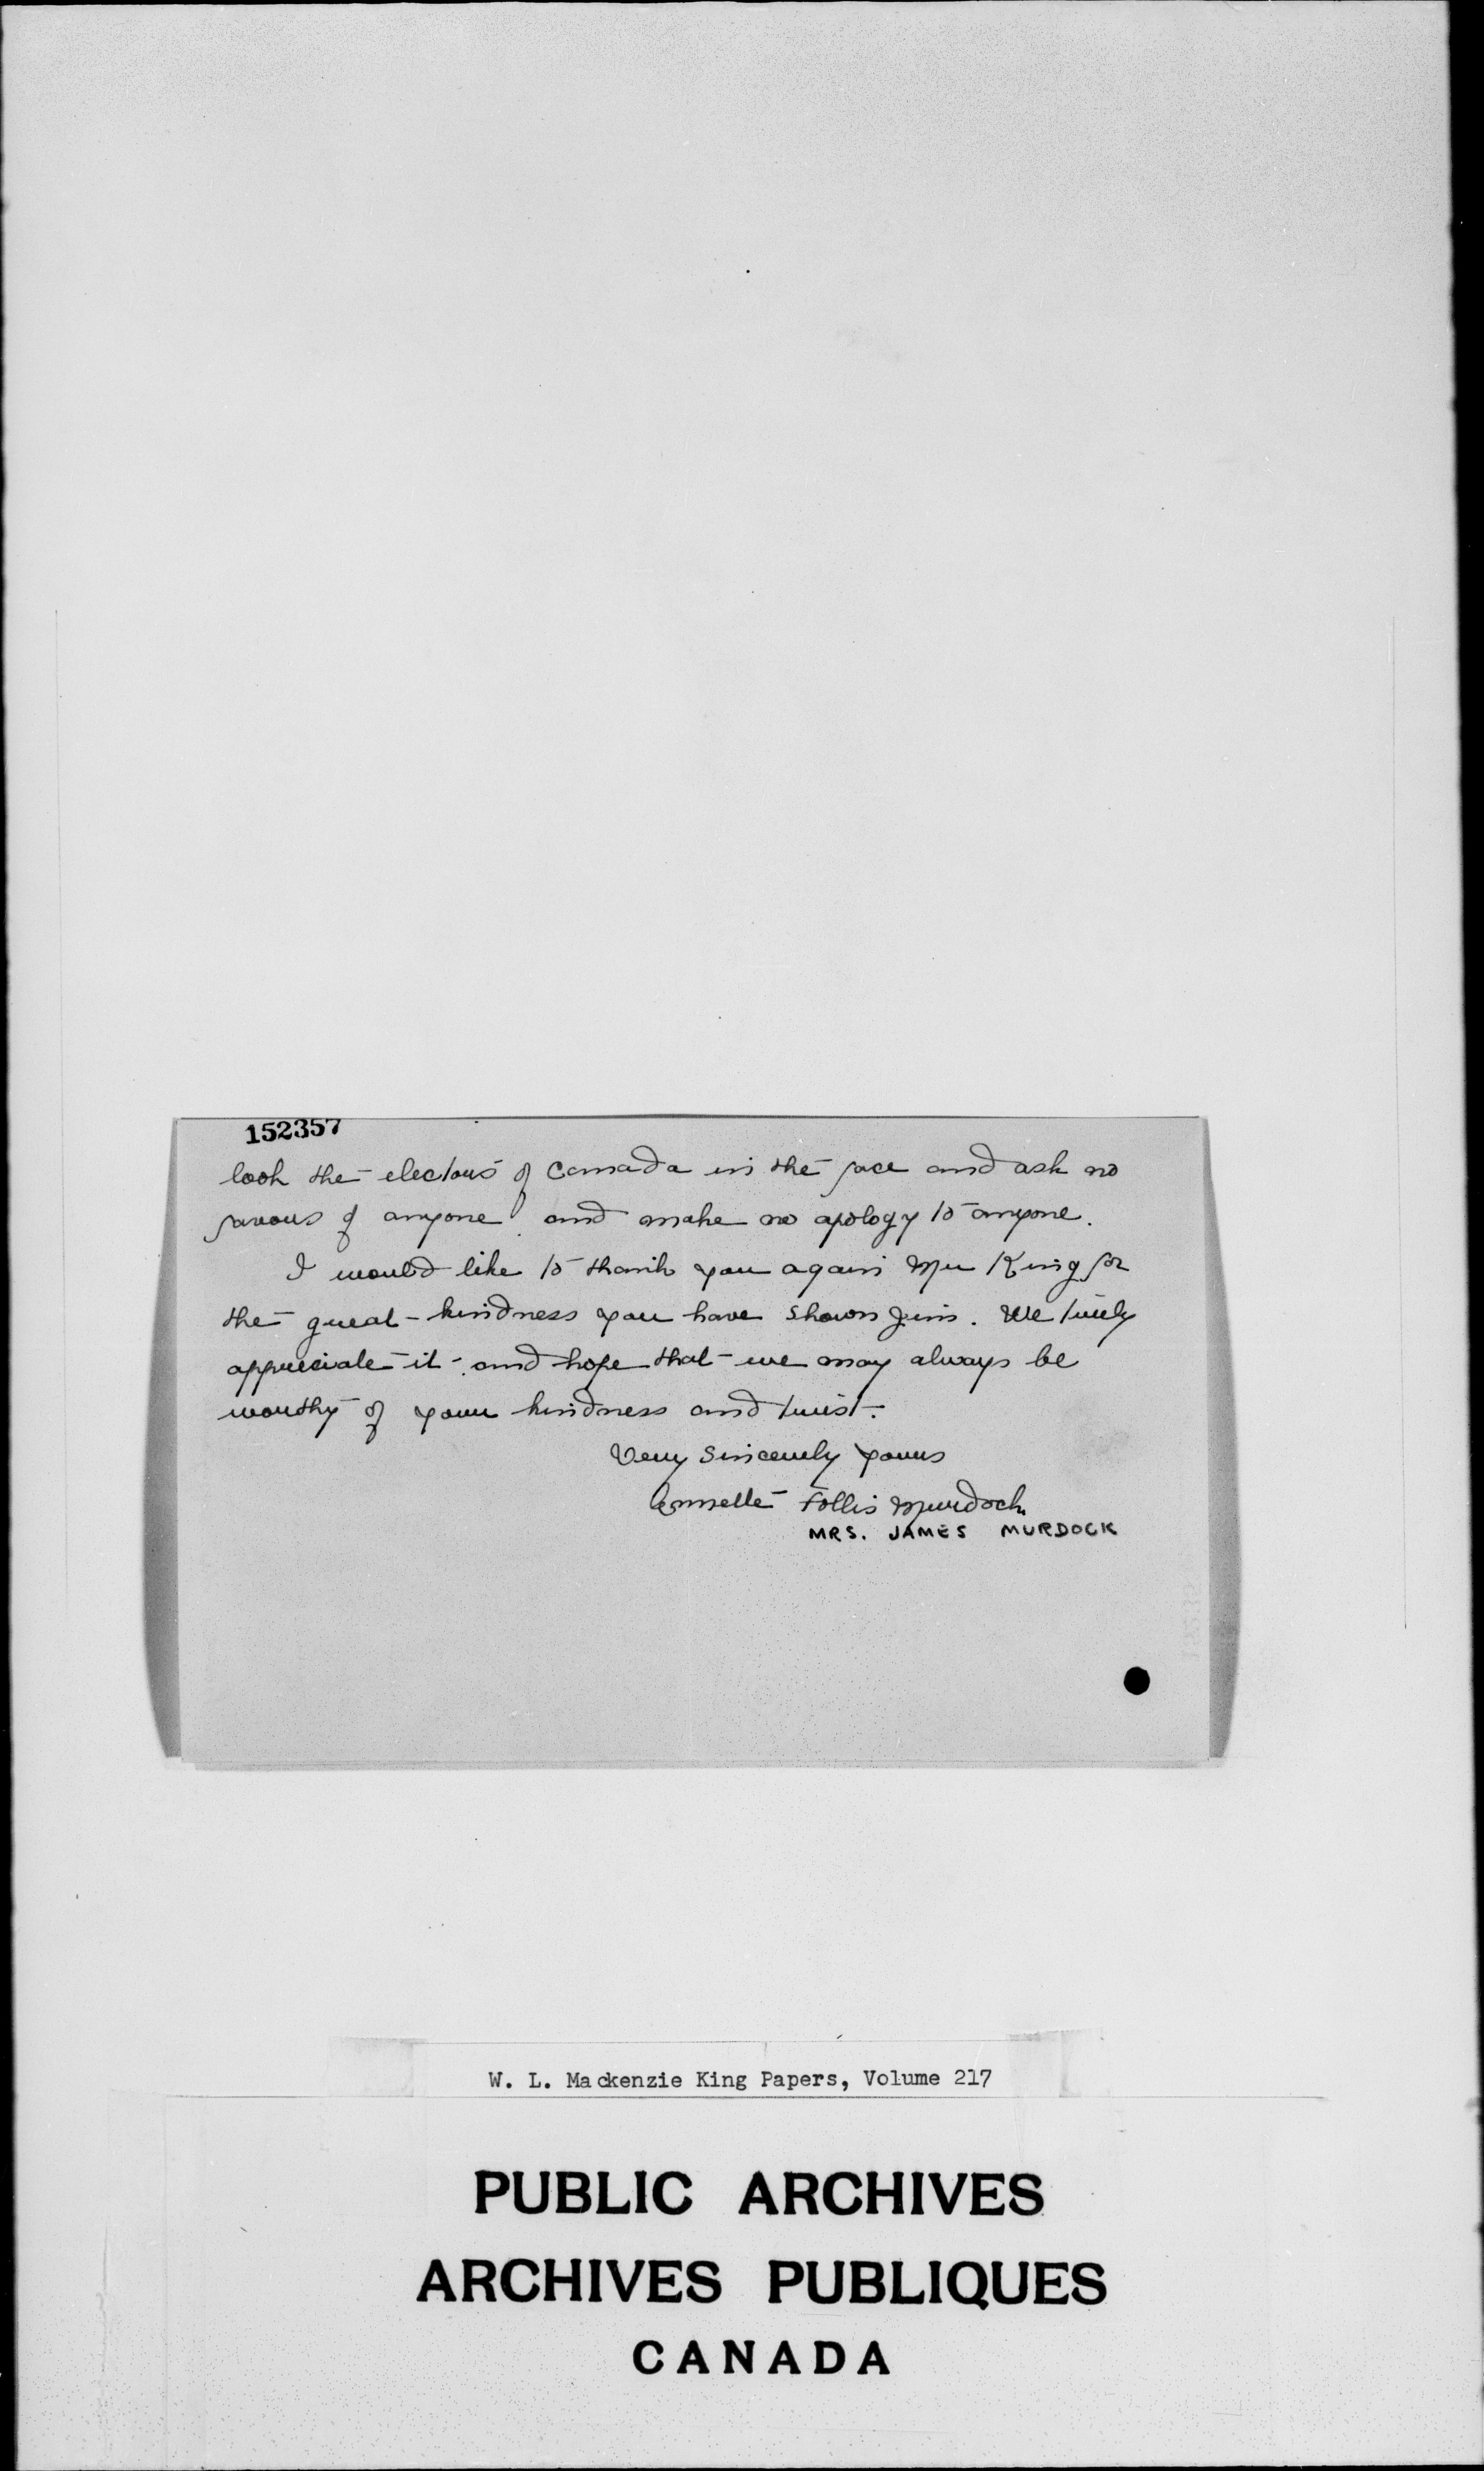 152357
look the electors of Canada in the face and ask no
favours of anyone and make no apology to anyone.
I would like to thank you again Mr King for
the great kindness you have shown Jim. We truly
appreciate it and hope that we may always be
worthy of your kindness and trust.
Very Sincerely yours
Annette Follis Murdock
MRS. JAMES MURDOCK
W. L. Mackenzie King Papers, Volume 217
PUBLIC ARCHIVES
ARCHIVES PUBLIQUES
CANADA